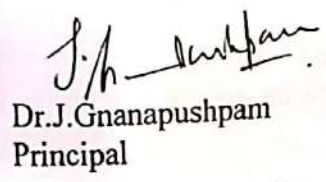 Dr.J.Gnanapushpam
Principal